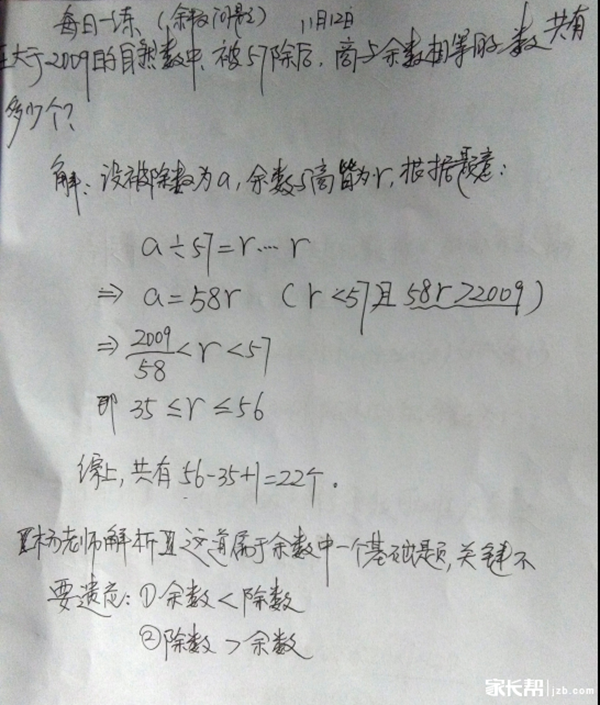 每日一练（余数问题） 11月12日
在大于2009的自然数中，被57除后，商与余数相等的数共有
多少个？
解：设被除数为a，余数与商皆为r，根据题意：
a÷57=r…r
⇒ a=58r （r<57且58r>2009）
⇒ 2009/58<r<57
即 35≤r≤56
综上，共有56-35+1=22个。
【杨老师解析】这道属于余数中一个基础题，关键不
要遗忘：①余数<除数
②除数>余数
家长帮 jzb.com